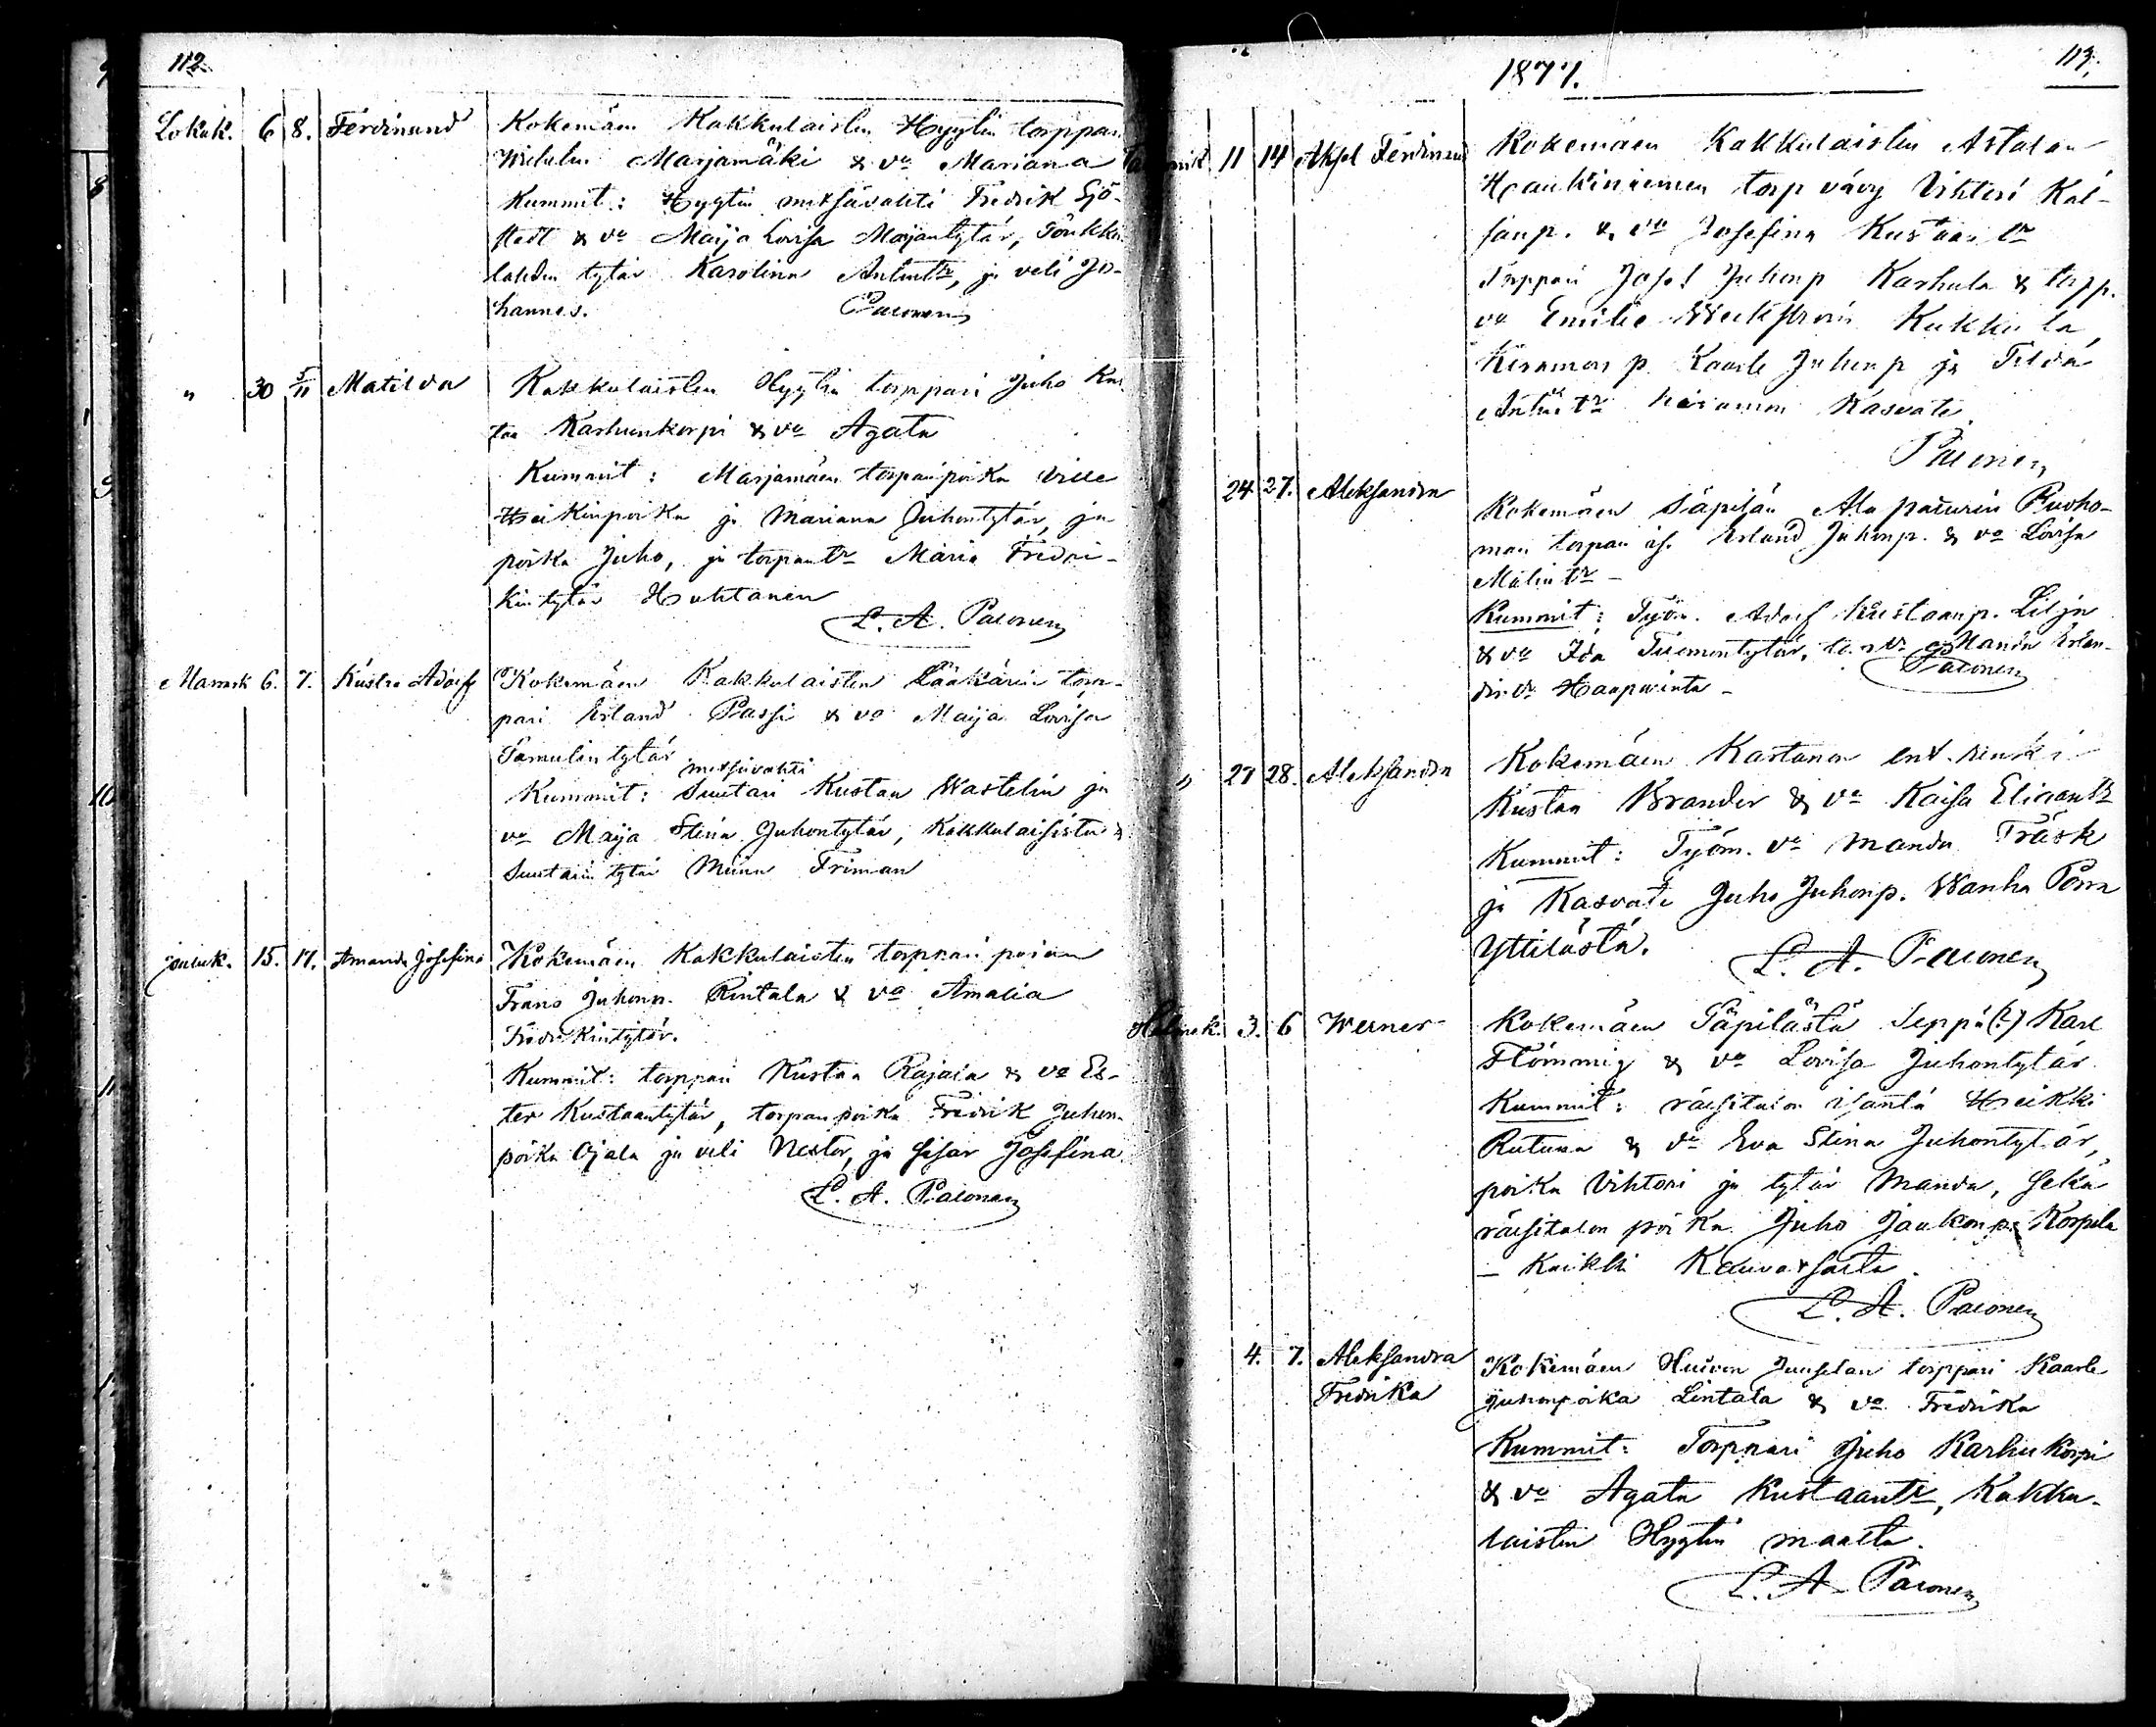 112.
Lokak. 6 8. Ferdinand Kokemäen Kakkulaisten Hyytin torppari
Wilhelm Marjamäki & va Mariana
Kummit: Hyytin metsävahti Fredrik Sjö-
stedt & va Maija Lovisa Maijantytär,
lahden tytär Karolina Anttintr, ja veli Jo-
hannes. Paeonen
" 30 5/11 Matilda Kakkulaisten Hyytin torppari Juho Kus-
taa Karhunkorpi & va Agata
Kummit: Marjamäen torpanpoika Ville
Heikinpoika ja Mariana Juhontytär, ja
poika Juho, ja torpantr Maria Fredri-
kintytär Huhtanen
L. A. Paeonen
Marrask 6. 7. Kustaa Adolf Kokemäen Kakkulaisten Lääkärin torp-
pari Erland Passi & va Maija Lovisa
Samulintytär
metsävahti
Kummit: Suutari Kustaa Wastelin ja
va Maija Stina Juhontytär, Kakkulaisista &
Suutarin tytär Miina Friman
Jouluk. 15. 17. Amanda Josefina Kokemäen Kakkulaisten torpparin pojan
Frans Juhonp. Rintala & va Amalia
Fredrikintytär.
Kummit: torppari Kustaa Rajala & va Es-
ter Kustaantytär, torpanpoika Fredrik Juhon-
poika Ojala ja veli Nestor, ja sisar Josefina.
L. A. Paeonen
1877. 113.
11 14 Aksel Ferdinand Kokemäen Kakkulaisten Astalan
Haukiniemen torp vävy Vihtori Kal-
sanp. & va Josefina Kustaantr
Torppari Josef Juhonp Karhula & torp.
va Emilie Weckström Kukkula
Keramon p. Kaarle Juhonp ja Tilda
Anttintr Keramon Kasvatti
Paeonen
24 27. Aleksandra
Kokemäen Säpilän Ala paturin Ruoho-
man torpan is. Erland Juhonp. & va Lovisa
Malintr -
Kummit: Työm. Adolf Kustaanp. Lilja
& va Ida Tuomentytär, Manda Erlan-
dintr Haapaninta - Paeonen
" 27 28. Aleksandra Kokemäen Kartanon ent. renki
Kustaa Brander & va Kaisa Eliaantr
Kummit: Työm. va Manda Träsk
ja Kasvatti Juho Juhonp. Wanha Porra
Yttilästä. L. A. Paeonen
Helmik. 3. 6 Werner Kokemäen Säpilästä Seppä (?) Karl
Flömmig & va Lovisa Juhontytär
Kummit: räsitalon isäntä Heikki
Rutuna & va Eva Stina Juhontytär,
poika Vihtori ja tytär Manda, sekä
räsitalon poika Juho Jaakonp. Korpela
- Kaikki Kauvatsalta.
L. A. Paeonen
4. 7. Aleksandra Kokemäen Huivon Juuselan torppari Kaarle
Fredrika Juhonpoika Lintala & va Fredrika
Kummit: Torppari Juho Karhukorpi
& va Agata Kustaantr, Kakku-
laisten Hyytin maalta.
L. A. Paeonen